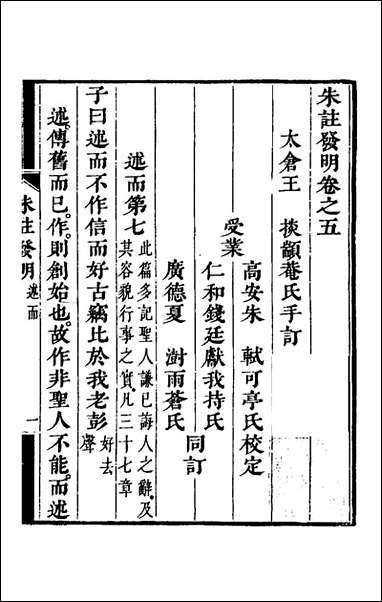 朱註發明卷之五
太倉王　掞顓菴氏手訂
受業
高安朱　軾可亭氏校定
仁和錢廷獻我持氏
廣德夏　澍雨蒼氏
同訂
述而第七
此篇多記聖人謙已誨人之辭及
其容貌行事之實凡三十七章
子曰述而不作信而好古竊比於我老彭
好去
聲
述傳舊而已作則創始也故作非聖人不能而述
朱註發明
述而
一